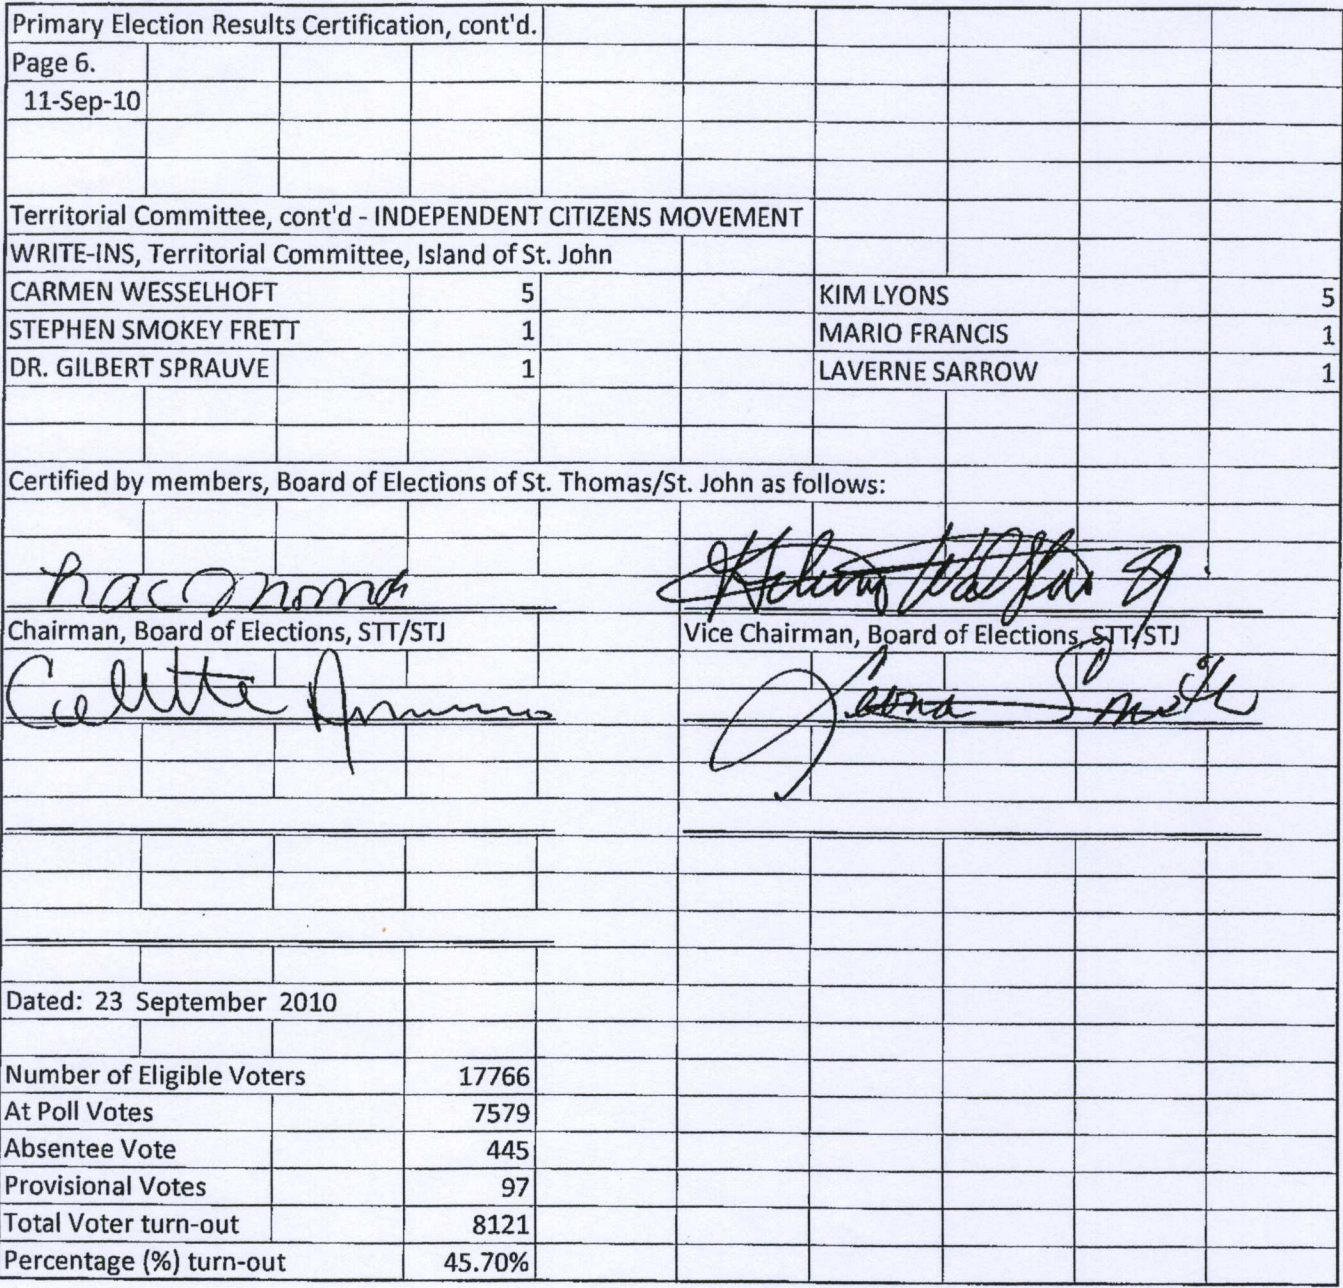 Primary Election Results Certification, cont'd.
Page 6.
11-Sep-10
Territorial Committee, cont'd - INDEPENDENT CITIZENS MOVEMENT
WRITE-INS, Territorial Committee, Island of St. John
CARMEN WESSELHOFT 5 KIM LYONS 5
STEPHEN SMOKEY FRETT 1 MARIO FRANCIS 1
DR. GILBERT SPRAUVE 1 LAVERNE SARROW 1
Certified by members, Board of Elections of St. Thomas/St. John as follows:
Chairman, Board of Elections, STT/STJ Vice Chairman, Board of Elections, STT/STJ
Smith
Dated: 23 September 2010
Number of Eligible Voters 17766
At Poll Votes 7579
Absentee Vote 445
Provisional Votes 97
Total Voter turn-out 8121
Percentage (%) turn-out 45.70%